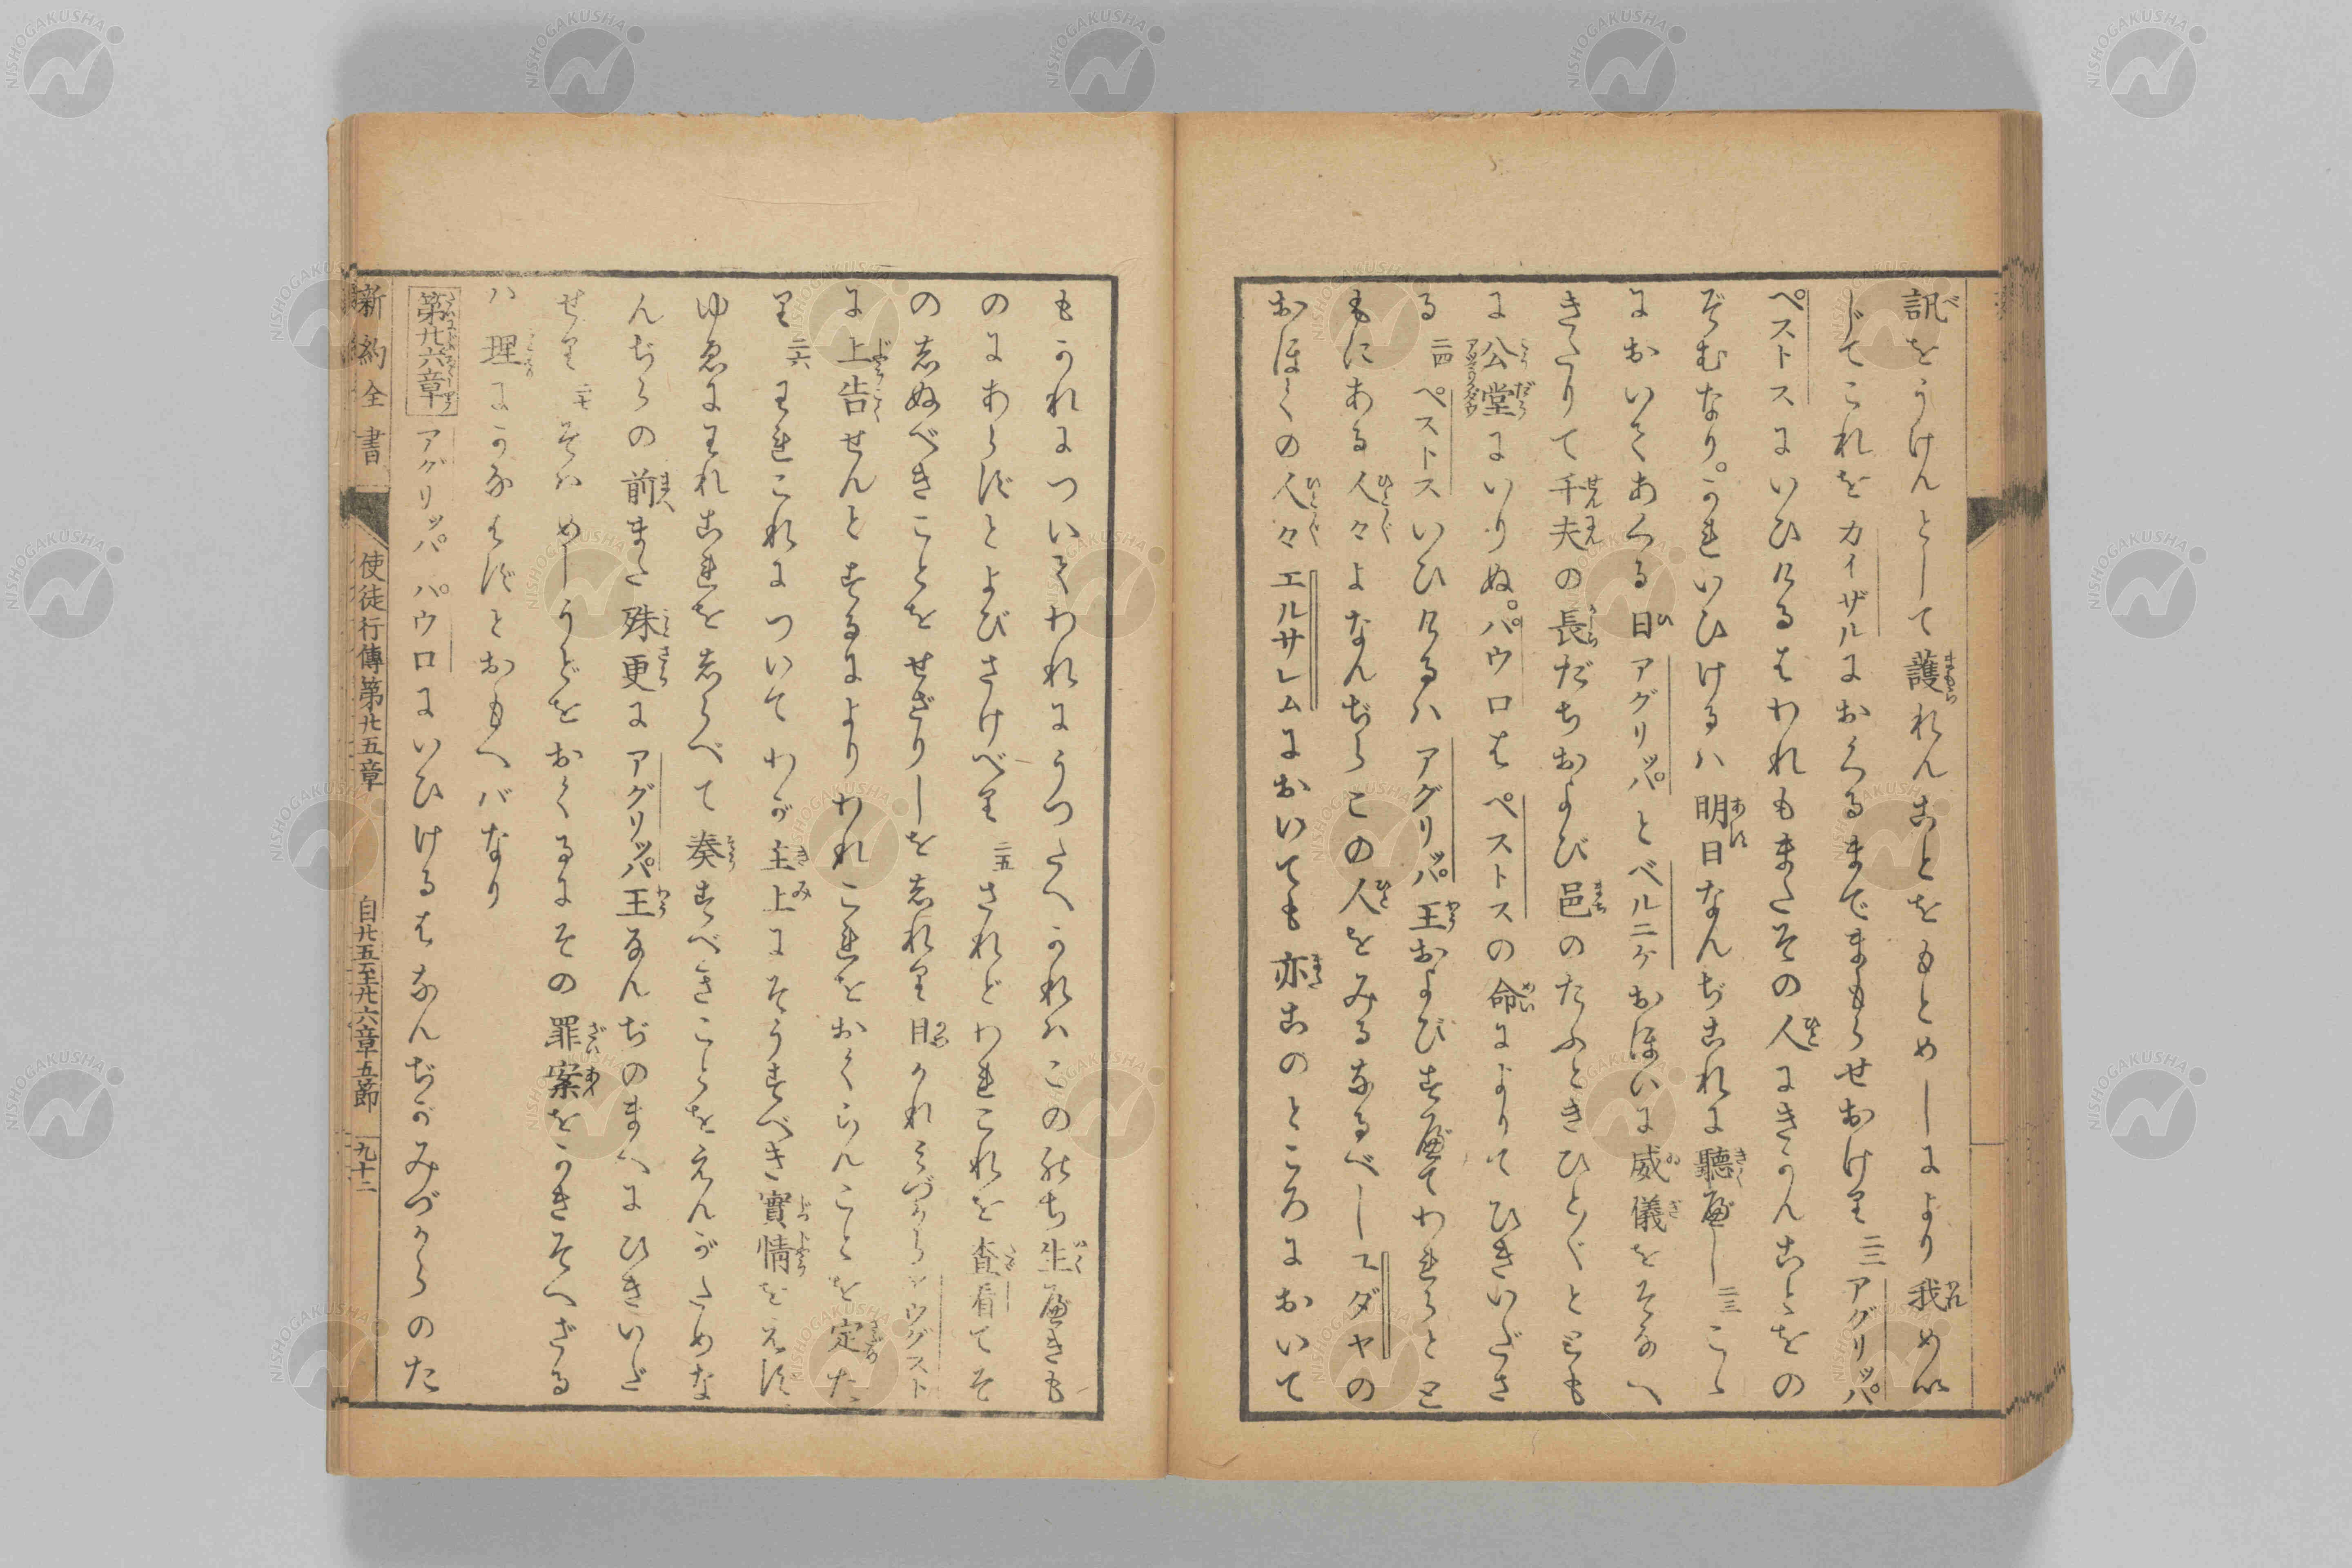 訊をうけんとして護れんことをもとめしにより我めい
じてこれをカイザルにおくるまでまもらせおけり 二二 アグリッパ
ペストスにいひけるはわれもまたその人にきかんことをの
ぞむなり。かれいひけるハ明日なんぢこれに聽べし 二三 こゝ
においてあくる日アグリッパとベルニケおほいに威儀をそなへ
きたりて千夫の長だちおよび邑のたふときひと〴〵とともに
に公堂にいりぬ。パウロはペストスの命によりてひきいださ
る 二四 ペストスいひけるハアグリッパ王およびすべてわれらとと
もにある人々よなんぢらこの人をみるなるべしユダヤの
おほくの人々エルサレムにおいても亦このところにおいて
もかれについてわれにうつたへかれハこののち生べきも
のにあらずとよびさけべり 二五 されどわれこれを査看てそ
の志ぬべきことをせざりしを志れり且かれみづからアウグスト
に上告せんとするによりわれこれをおくらんことを定た
り 二六 われこれについてわが主上にそうすべき實情をえず
ゆゑにわれこれを志らべて奏すべきことをえんがためな
んぢらの前また殊更にアグリッパ王なんぢのまへにひきいだ
せり 二七 そハめしうどをおくるにその罪案をかきそへざる
ハ理にかなはずとおもへバなり
第廿六章 アグリッパ パウロにいひけるはなんぢがみづからのた
新約全書 使徒行傳第廿五章 自廿五至廿六章五節 九十二
NISHOGAKUSHA